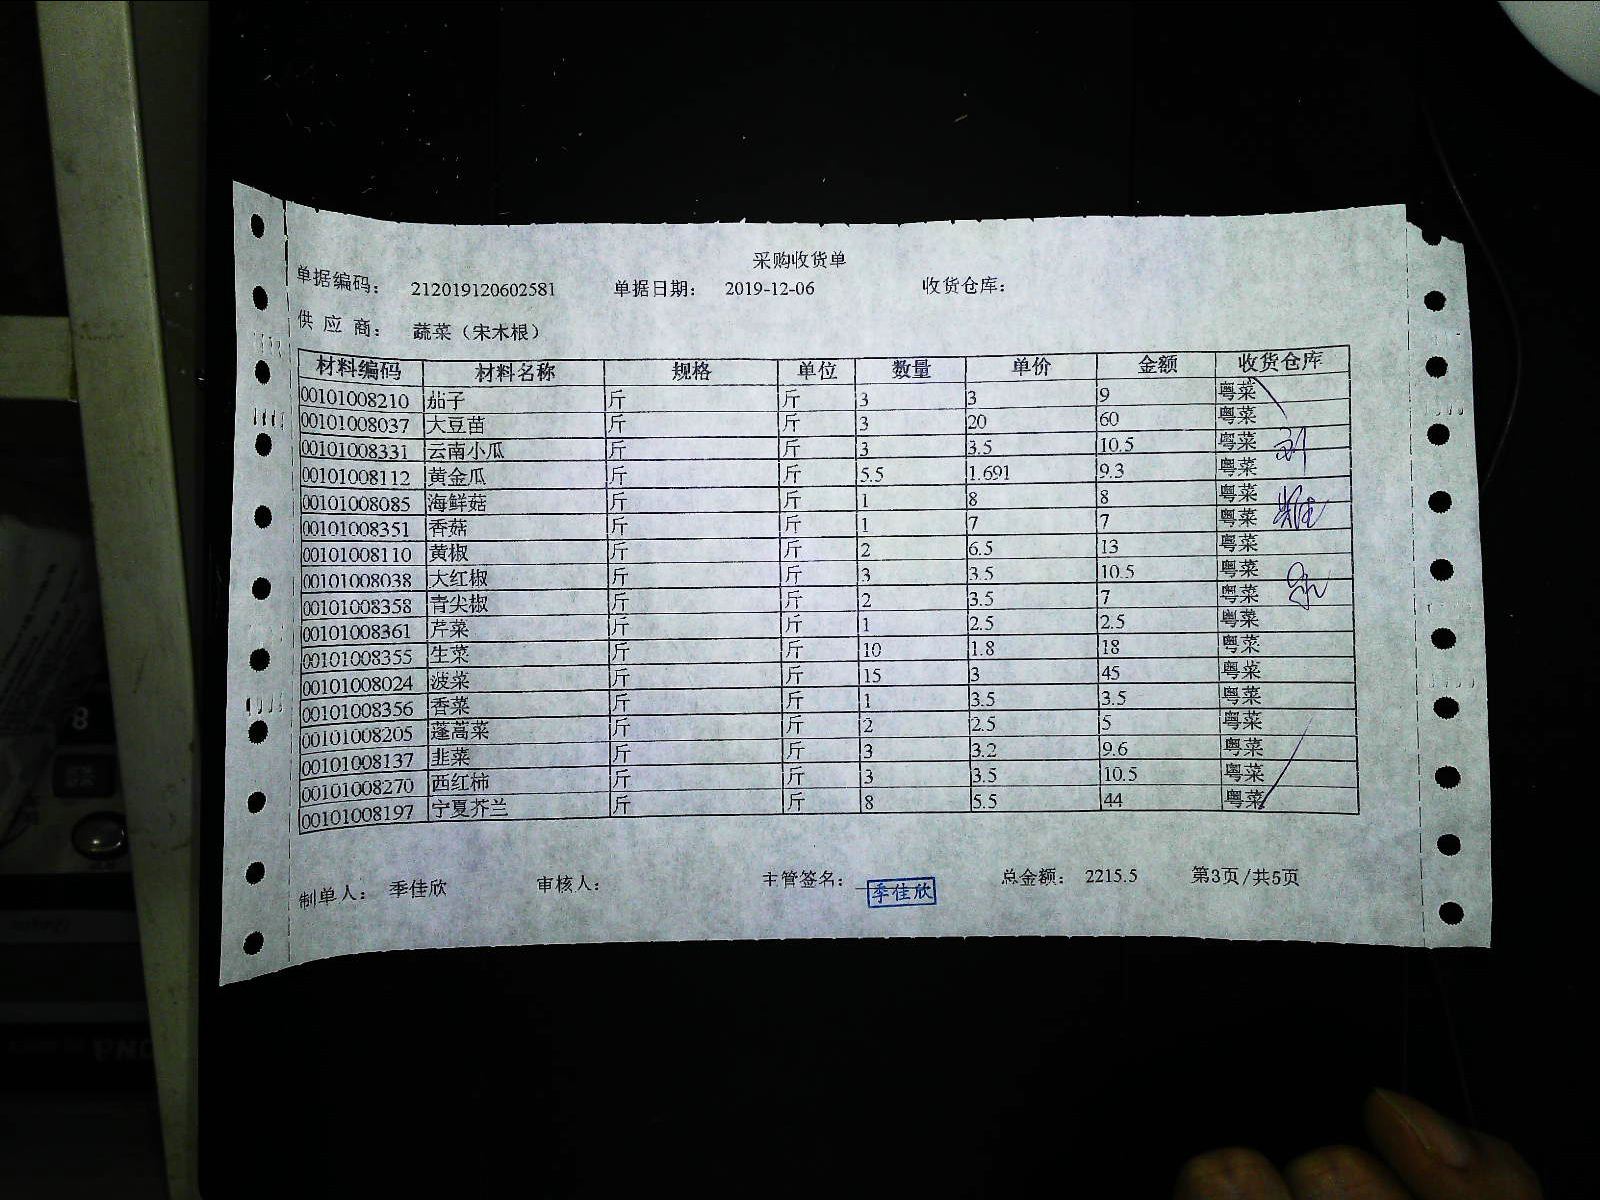 采购收货单
单据编码： 212019120602581 单据日期： 2019-12-06 收货仓库：
供 应 商： 蔬菜（宋木根）
材料编码 材料名称 规格 单位 数量 单价 金额 收货仓库
00101008210 茄子 斤 斤 3 3 9 粤菜
00101008037 大豆苗 斤 斤 3 20 60 粤菜
00101008331 云南小瓜 斤 斤 3 3.5 10.5 粤菜
00101008112 黄金瓜 斤 斤 5.5 1.691 9.3 粤菜
00101008085 海鲜菇 斤 斤 1 8 8 粤菜
00101008351 香菇 斤 斤 1 7 7 粤菜
00101008110 黄椒 斤 斤 2 6.5 13 粤菜
00101008038 大红椒 斤 斤 3 3.5 10.5 粤菜
00101008358 青尖椒 斤 斤 2 3.5 7 粤菜
00101008361 芹菜 斤 斤 1 2.5 2.5 粤菜
00101008355 生菜 斤 斤 10 1.8 18 粤菜
00101008024 菠菜 斤 斤 15 3 45 粤菜
00101008356 香菜 斤 斤 1 3.5 3.5 粤菜
00101008205 蓬蒿菜 斤 斤 2 2.5 5 粤菜
00101008137 韭菜 斤 斤 3 3.2 9.6 粤菜
00101008270 西红柿 斤 斤 3 3.5 10.5 粤菜
00101008197 宁夏芥兰 斤 斤 8 5.5 44 粤菜
制单人： 季佳欣 审核人： 主管签名： 季佳欣 总金额： 2215.5 第3页/共5页